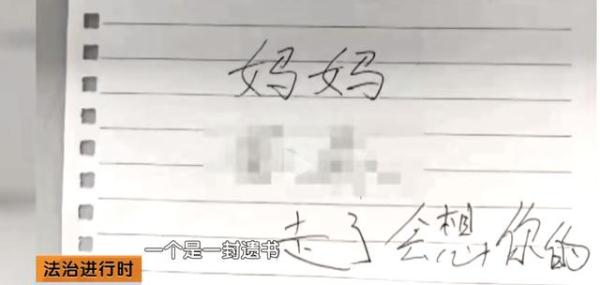 妈妈
走了会想你的
一个是一封遗书
法治进行时